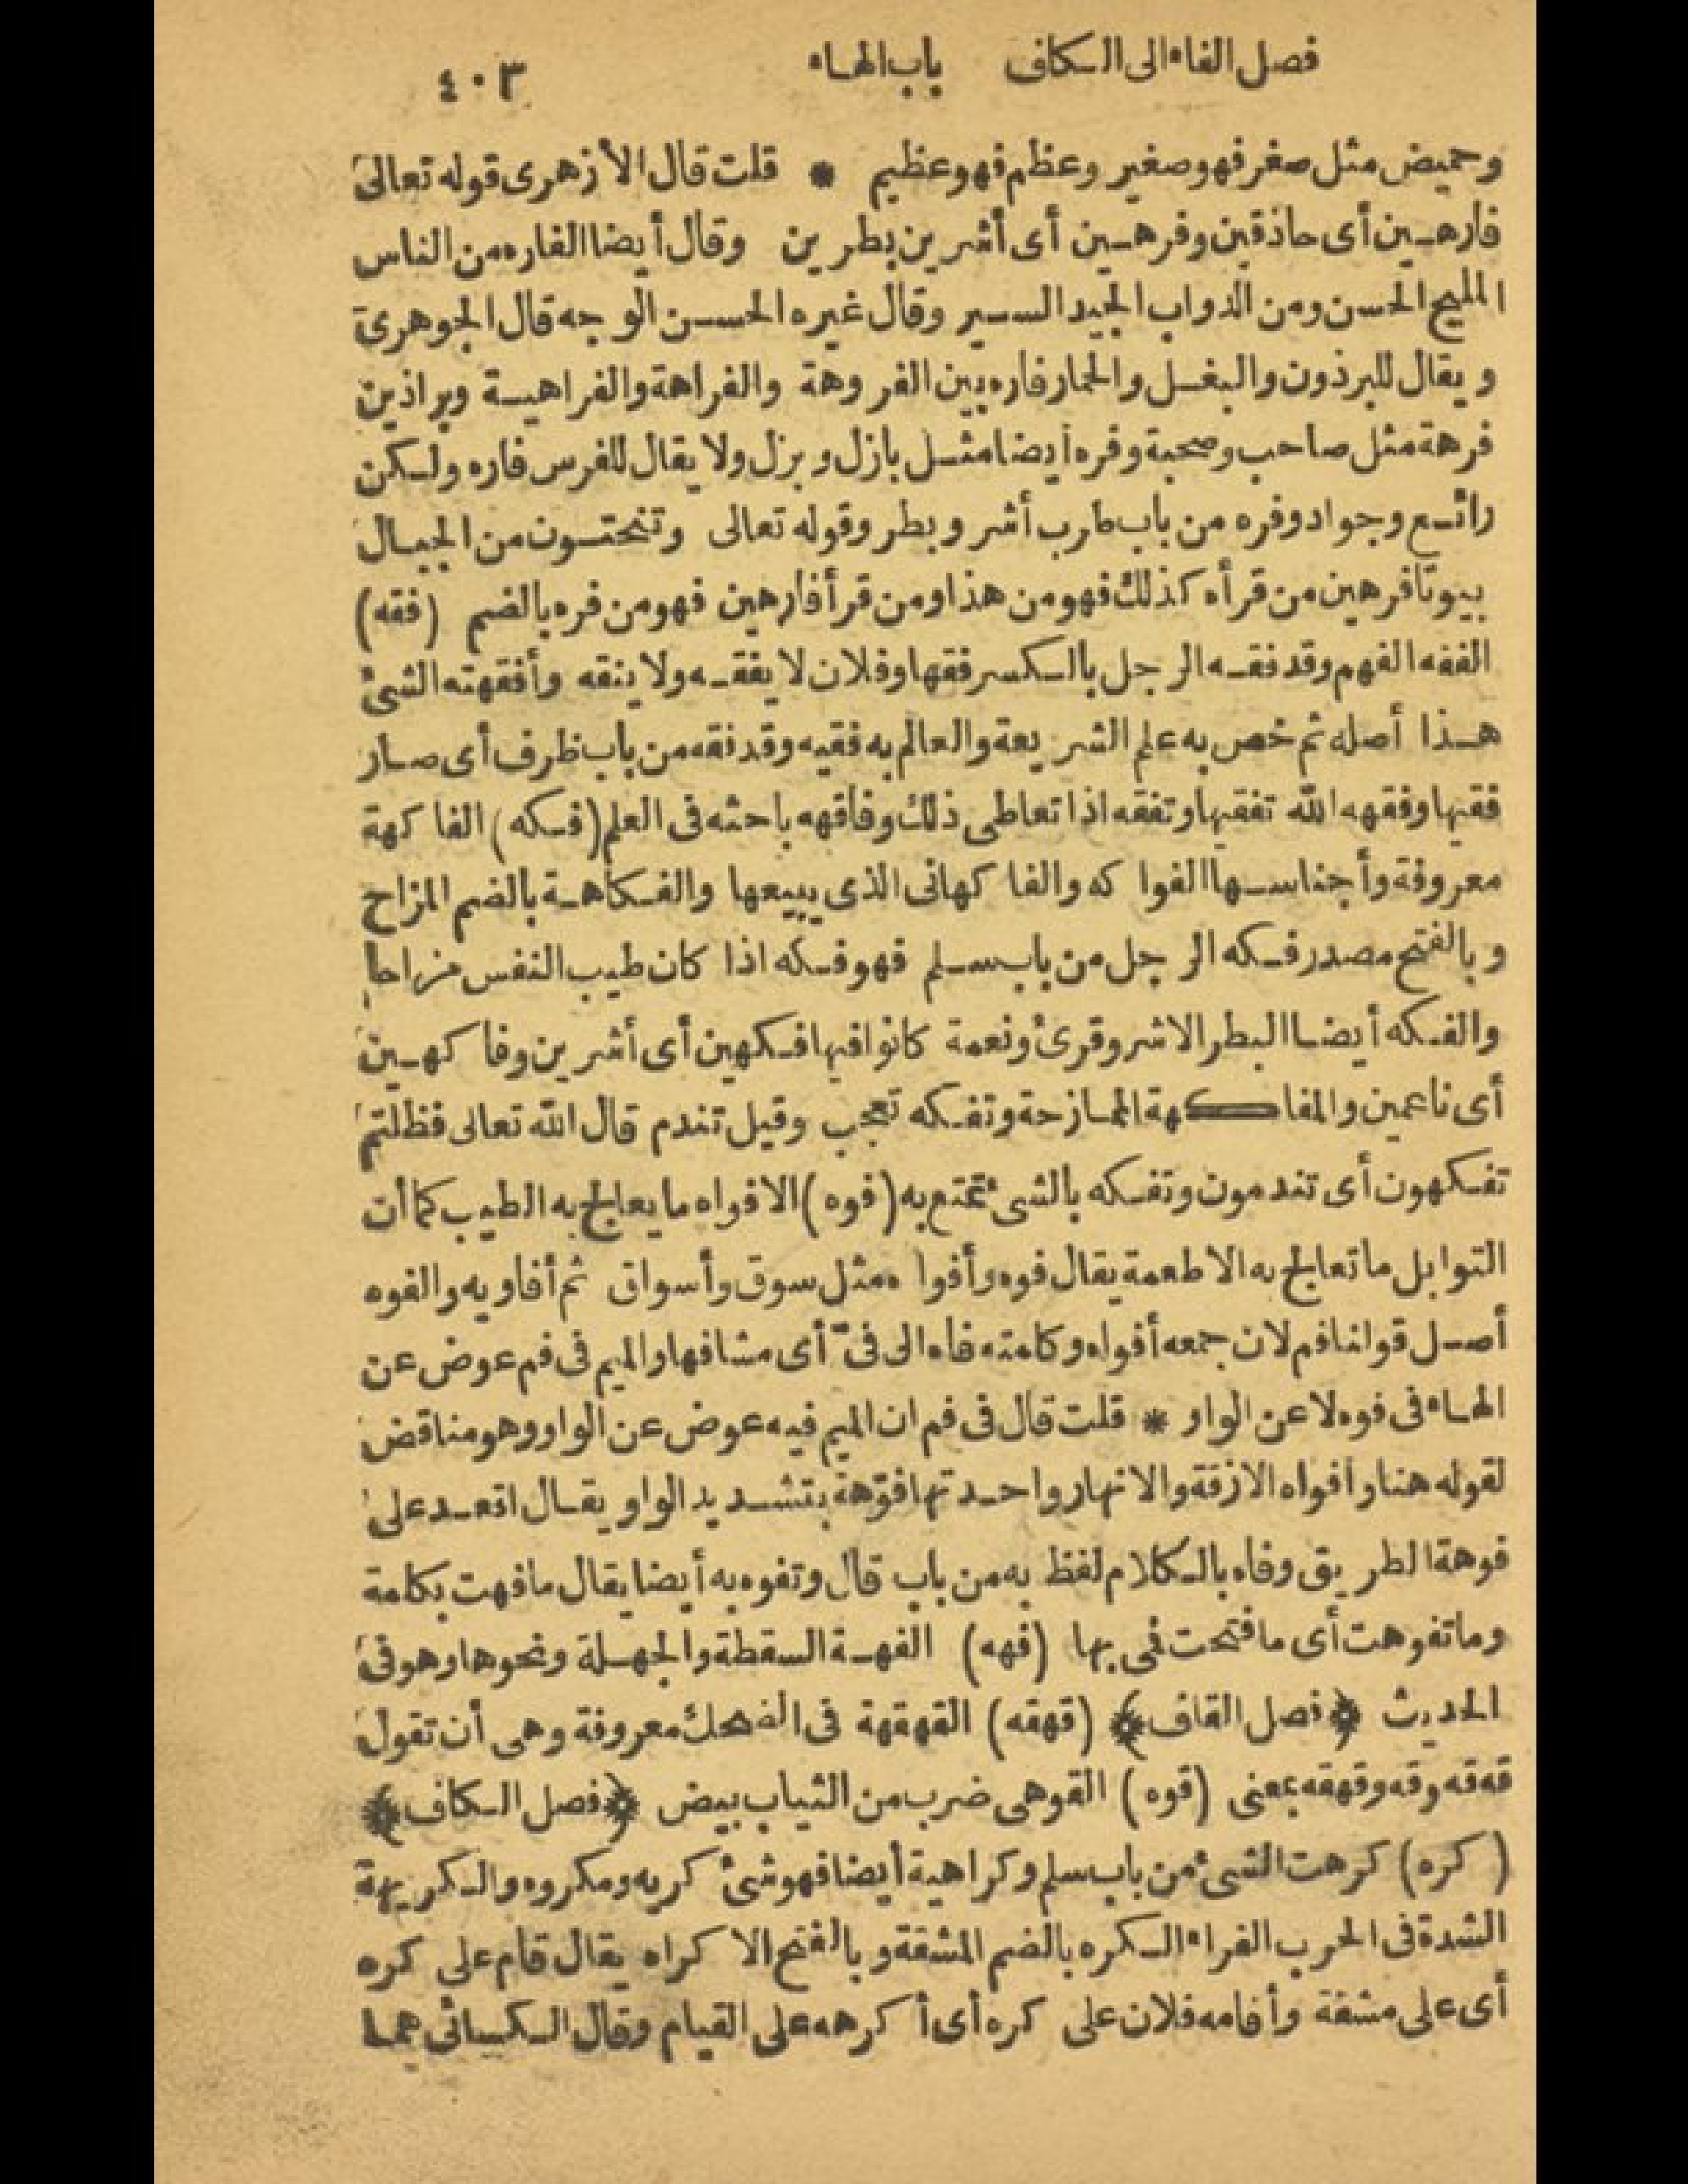 فصل الفاء الى الكاف باب الهاء ٤٠٣
وحميض مثل صغر فهو صغير وعظم فهو عظيم * قلت قال الأزهرى قوله تعالى
فارهين أى حاذقين وفرهين أى أشرين بطرين وقال أيضا الفاره من الناس
المليح الحسن ومن الدواب الجيد السير وقال غيره الحسن الوجه قال الجوهرى
ويقال للبرذون والبغل والحمار فاره بين الفروهة والفراهة والفراهية وبراذين
فرهة مثل صاحب وصحبة وفره أيضا مثل بازل وبزل ولا يقال للفرس فاره ولكن
رائع وجواد وفره من باب طرب أشر وبطر وقوله تعالى وتنحتون من الجبال
بيوتا فرهين من قرأه كذلك فهو من هذا ومن قرأ فارهين فهو من فره بالضم (فقه)
الفقه الفهم وقد فقه الرجل بالكسر فقها وفلان لا يفقه ولا ينقه وأفقهته الشئ
هذا أصله ثم خص به علم الشريعة والعالم به فقيه وقد فقه من باب ظرف أى صار
فقيها وفقهه الله تفقيها وتفقه اذا تعاطى ذلك وفاقهه باحثه فى العلم (فكه) الفاكهة
معروفة وأجناسها الفواكه والفاكهانى الذى يبيعها والفكاهة بالضم المزاح
وبالفتح مصدر فكه الرجل من باب سلم فهو فكه اذا كان طيب النفس مزاحا
والفكه أيضا البطر الاشر وقرئ ونعمة كانوا فيها فكهين أى أشرين وفاكهين
أى ناعمين والمفاكهة الممازحة وتفكه تعجب وقيل تندم قال الله تعالى فظلتم
تفكهون أى تندمون وتفكه بالشئ تمتع به (فوه) الافواه ما يعالج به الطيب كما أن
التوابل ما تعالج به الاطعمة يقال فوه وأفواه مثل سوق وأسواق ثم أفاويه والفوه
أصل قولنا فم لان جمعه أفواه وكلمته فاه الى فىّ أى مشافها والميم فى فم عوض عن
الهاء فى فوه لا عن الواو * قلت قال فى فم ان الميم فيه عوض عن الواو وهو مناقض
لقوله هنا وأفواه الازقة والانهار واحدتها فوّهة بتشديد الواو يقال اقعد على
فوهة الطريق وفاه بالكلام لفظ به من باب قال وتفوه به أيضا يقال ما فهت بكلمة
وما تفوهت أى ما فتحت فمى بها (فهه) الفهة السقطة والجهلة ونحوها وهو فى
الحديث ﴿فصل القاف﴾ (قهقه) القهقهة فى الضحك معروفة وهى أن تقول
قه قه وقه وقهقه بمعنى (قوه) القوهى ضرب من الثياب بيض ﴿فصل الكاف﴾
(كره) كرهت الشئ من باب سلم وكراهية أيضا فهو شئ كريه ومكروه والكريهة
الشدة فى الحرب الفراء الكره بالضم المشقة وبالفتح الاكراه يقال قام على كره
أى على مشقة وأقامه فلان على كره أى أكرهه على القيام وقال الكسائى هما